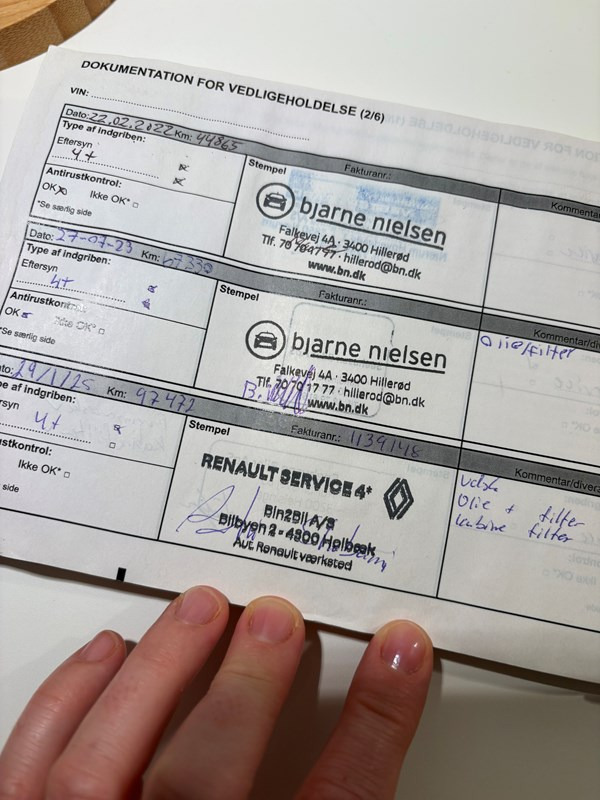 DOKUMENTATION FOR VEDLIGEHOLDELSE (2/6)
VIN:
Dato: 22.02.2022 Km: 44865
Type af indgriben:
Eftersyn
4+
Antirustkontrol:
OK Ikke OK*
*Se særlig side
Stempel Fakturanr.:
bjarne nielsen
Falkevej 4A · 3400 Hillerød
Tlf. 70 70 17 77 · hillerod@bn.dk
www.bn.dk
Kommentar
Dato: 27-07-23 Km: 67330
Type af indgriben:
Eftersyn
4+
Antirustkontrol:
OK Ikke OK*
*Se særlig side
Stempel Fakturanr.:
bjarne nielsen
Falkevej 4A · 3400 Hillerød
Tlf. 70 70 17 77 · hillerod@bn.dk
www.bn.dk
Kommentar/div
Olie/filter
ato: 29/1/25 Km: 97472
pe af indgriben:
ersyn
4+
ustkontrol:
Ikke OK*
side
Stempel Fakturanr.: 1139148
RENAULT SERVICE 4*
Bin2Bil A/S
Bilbyen 2 - 4300 Holbæk
Aut. Renault værksted
Kommentar/divers
Olie + filter
kabine filter